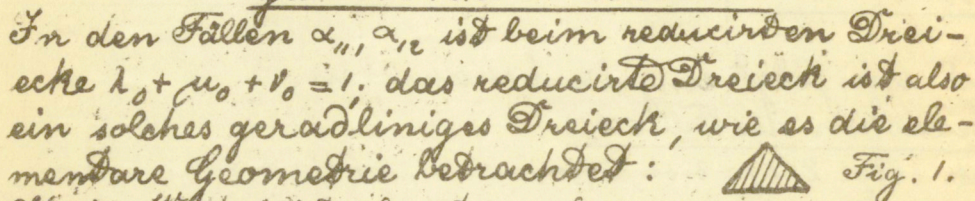 In den Fällen α₁₁, α₁₂ ist beim reducirten Drei-
ecke λ₀ + μ₀ + ν₀ = 1; das reducirte Dreieck ist also
ein solches geradliniges Dreieck, wie es die ele-
mentare Geometrie betrachtet: Fig. 1.